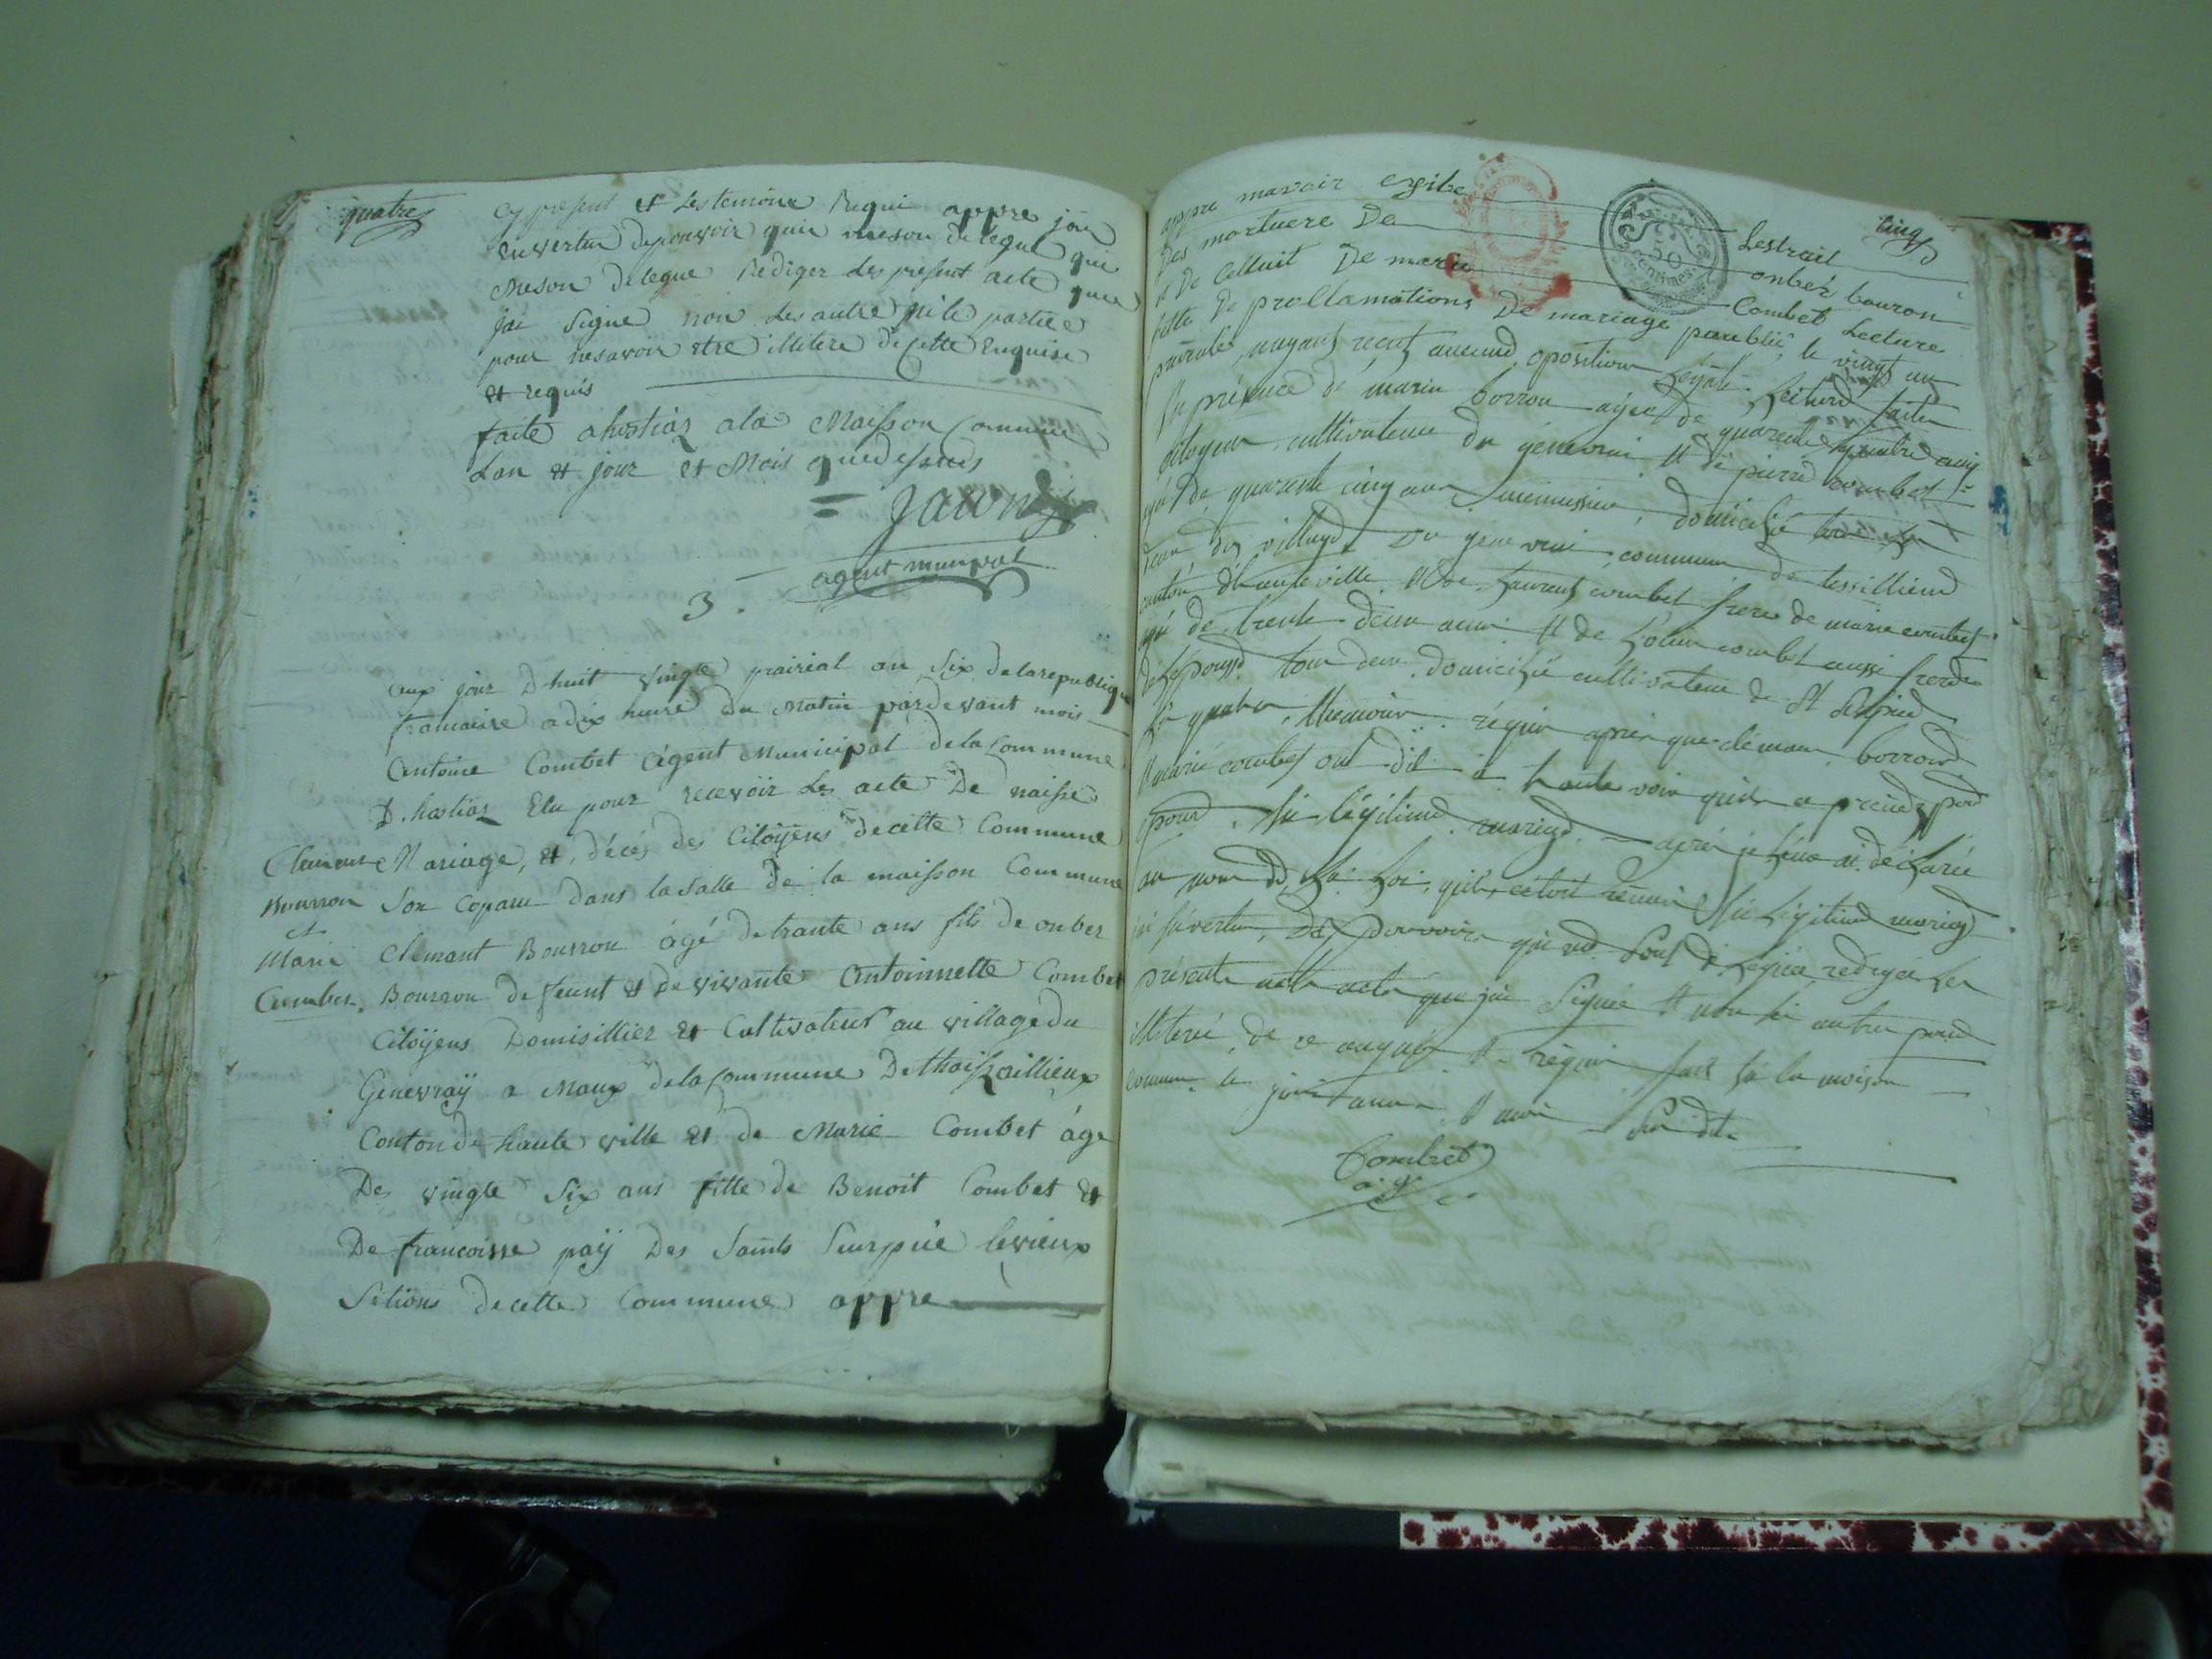 quatre
cy present et les temoins Requi appre jois
en vertu de pouvoir qui meson delegue qui
meson delegue Rediger les present acte que
jai Signe non les autre ni le partie
pour ne savoir etre illitere de cette Enquise
et requis
faite a hostiaz a la Maisson Commune
Lan et jour et Mois que desus
agent munipal
3.
aux jour D huit vingte prairial an Six de la republique
francaise a dix heure du Matin pardevant mois
Antoine Combet Agent Municipal de la Commune
D. hostiaz Elu pour recevoir les acte De naisse
Mariage, et, décés des Citoÿens de cette Commune
Son Coparu dans la Salle de la maisson Commune
Clemant Bourron
et
Marie
Combet.
Clemant Bourron ágé de trante ans fils de onber
Bourron defeunt et de vivante Antoinnette Combet
Citoÿens Domisillier et Cultivateur au village du
Genevraÿ a Maux de la Commune De thaissillieux
Conton de haute ville et de Marie Combet áge
Des vingte Six ans fille de Benoit Combet et
De francoisse paÿ Des Saints Surpie levieux
Setions de cette Commune appre
cinq
appre mavoir exsibe Lestrait
Des mortuere De onber bouron
et De Celluit De marie Combet Lecture
fette De proclamations De mariage peublié, le vingt un
prairial, nayant recut aucune oposition Legale. Lecture faite
En présence de marin borron agée de quarente quatre ans
sitoyen cultivateur du genevrai et de pierre combet
agé de quarante cinq ans menuisier, domicilié tous les
deux du village du genevrai commune de tessillieu
canton d'hauteville. et de Laurent combet frere de marie combet
agé de trente deux ans et de combet aussi frere
de Lepouse tous deux domicilié cultivateur de St Surpie
Les quatre themoins réquis aprés que clemant borron
et marie combet ont dit a haute voix quil se prende pour
epoux en légitime mariage. aprés je leur ai déclarée
au nom de La Loi, quil etoit reunis en Légitime mariage
jai en vertu des pouvoirs qui me sont délégués redigée les
présente acte que jai Signée et non les autres pour
illiterée de ce enquis et réquis fait à la maison
commune le jour anné et moi Su dit
Combet
a.g.